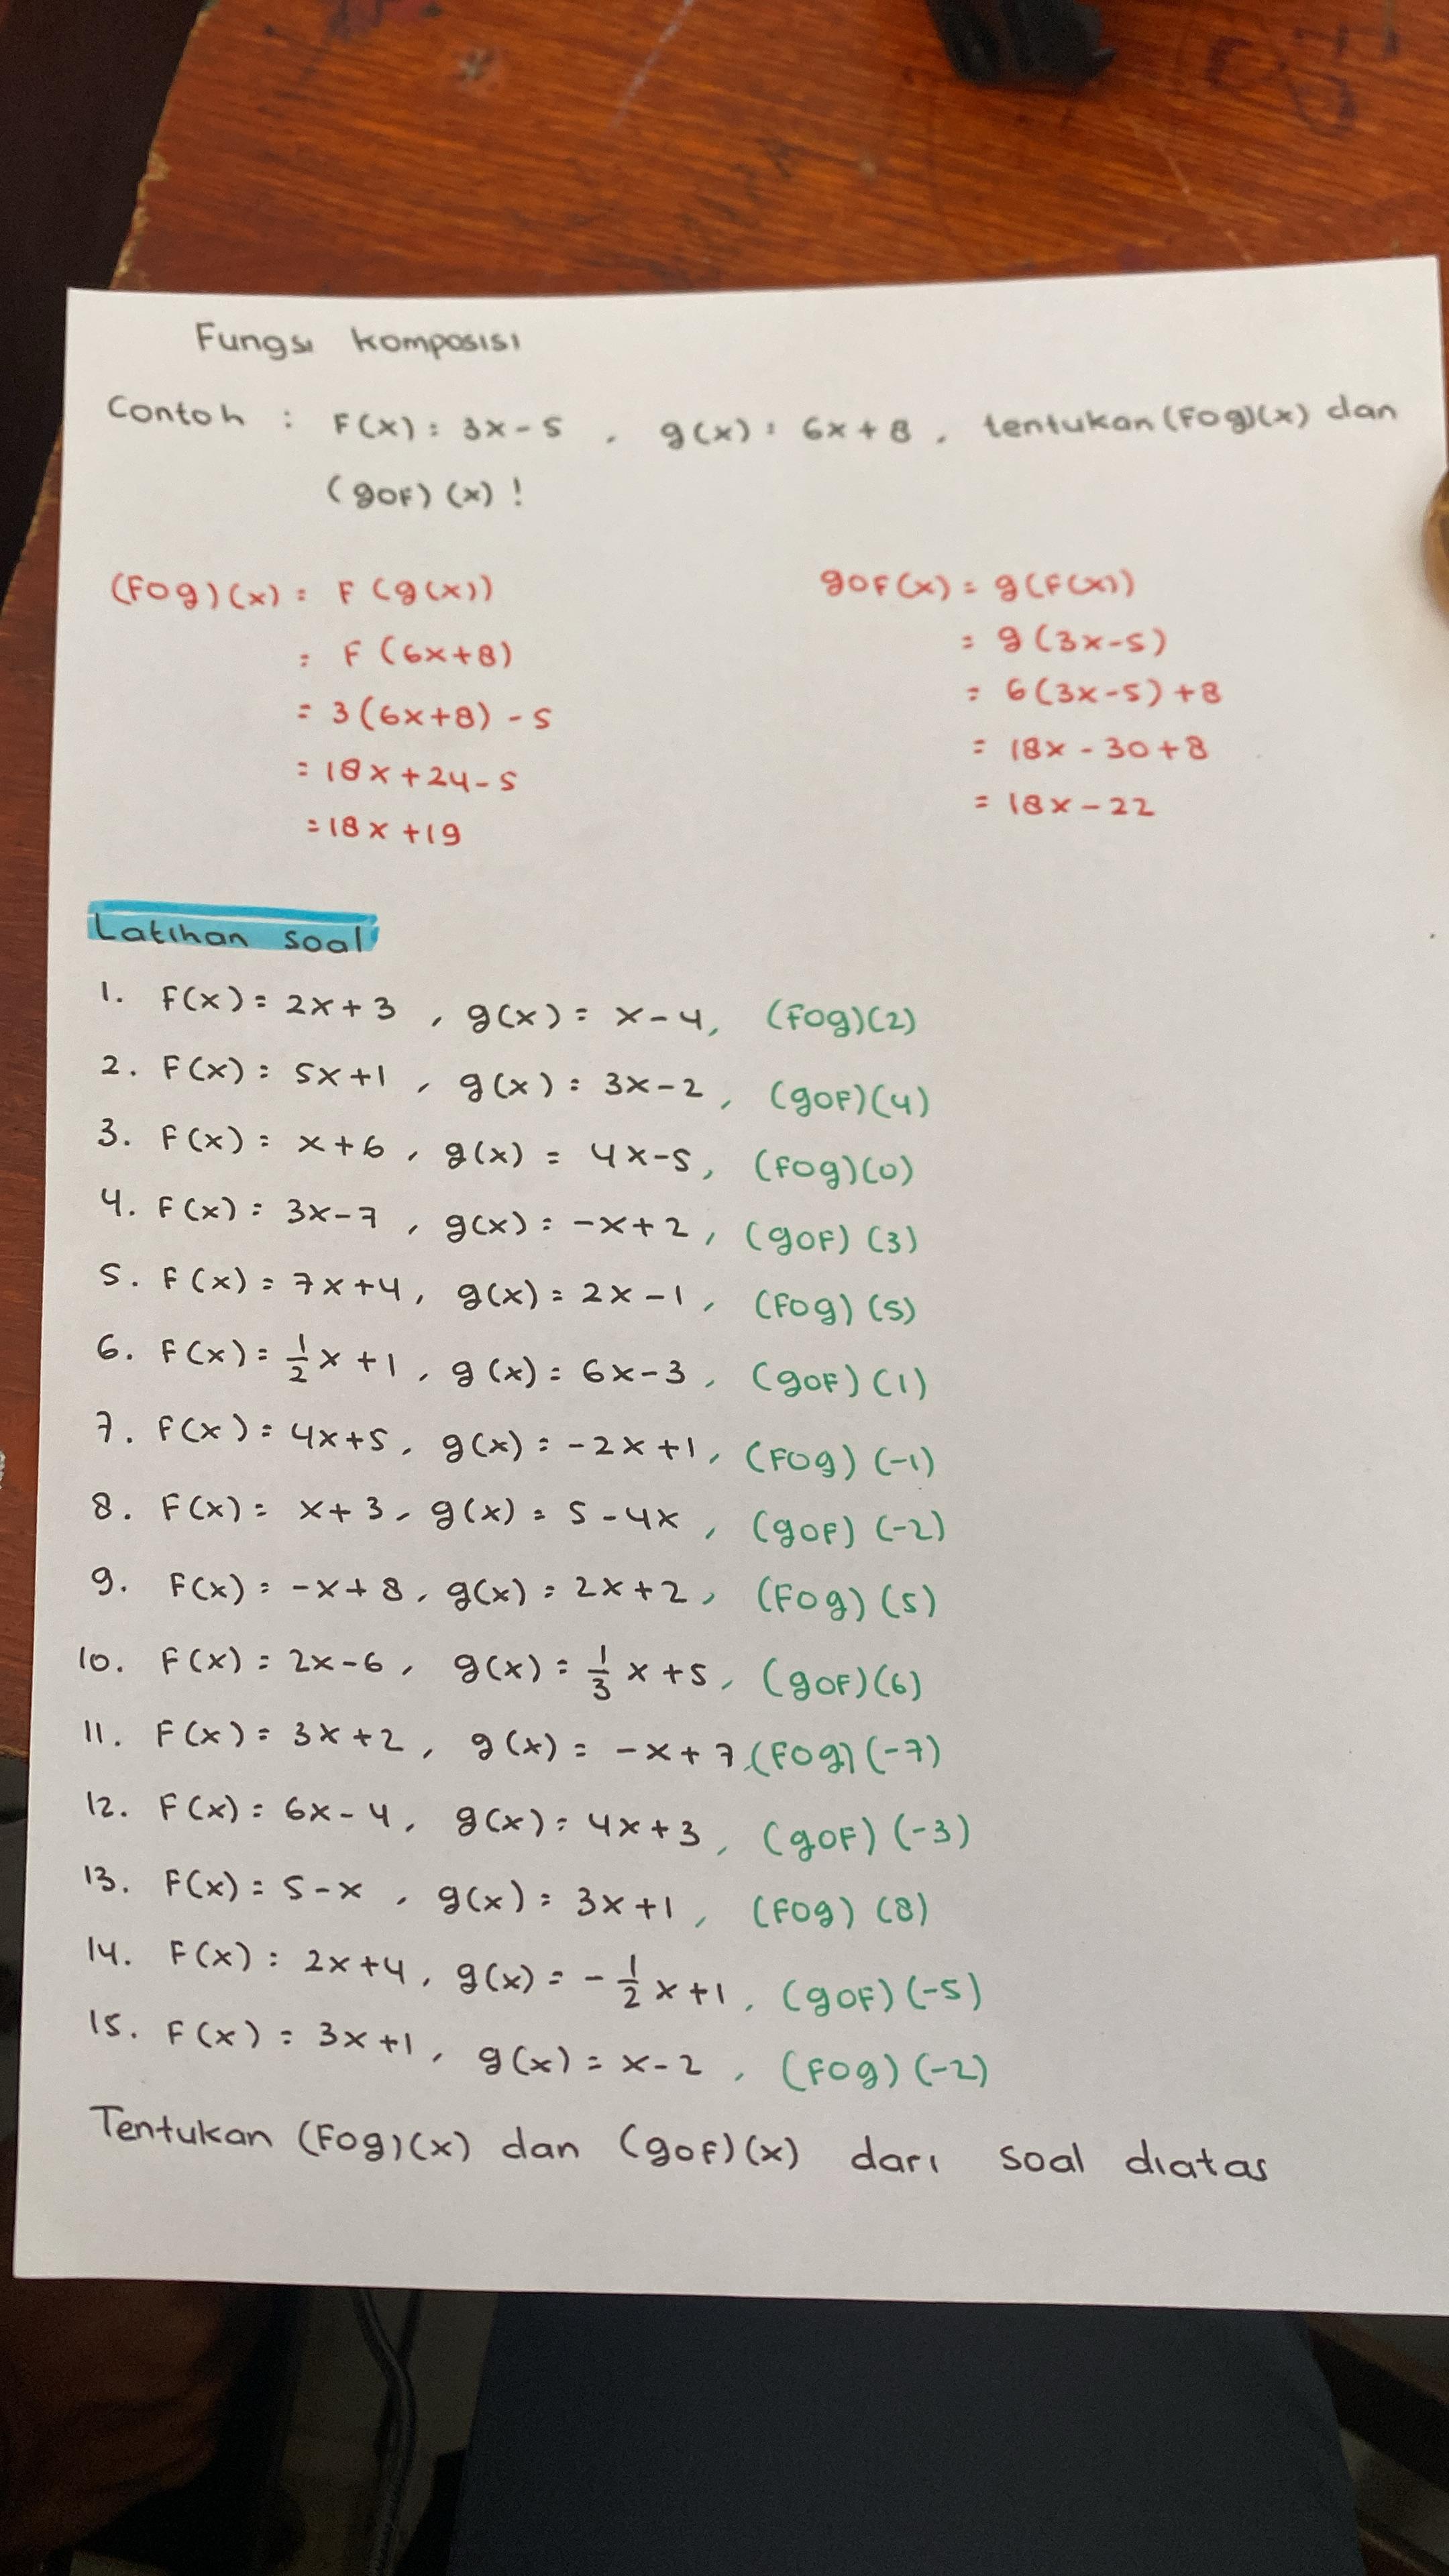 Fungsi komposisi
Contoh : F(x) = 3x - 5 , g(x) = 6x + 8 , tentukan (Fog)(x) dan
(goF) (x) !
(Fog)(x) = F (g(x))
= F (6x+8)
= 3(6x+8) - 5
= 18x + 24 - 5
= 18x + 19
goF(x) = g(F(x))
= g (3x-5)
= 6(3x-5) + 8
= 18x - 30 + 8
= 18x - 22
Latihan soal
1. F(x) = 2x + 3 , g(x) = x - 4, (Fog)(2)
2. F(x) = 5x+1 , g(x) = 3x - 2 , (goF)(4)
3. F(x) = x+6 , g(x) = 4x-5, (Fog)(0)
4. F(x) = 3x-7 , g(x) = -x+2 , (goF) (3)
5. F(x) = 7x+4, g(x) = 2x-1 , (Fog) (5)
6. F(x) = 1/2 x + 1 , g(x) = 6x-3 , (goF) (1)
7. F(x) = 4x+5 , g(x) = -2x+1 , (Fog) (-1)
8. F(x) = x+3 , g(x) = 5-4x , (goF) (-2)
9. F(x) = -x+8 , g(x) = 2x+2 , (Fog) (5)
10. F(x) = 2x-6 , g(x) = 1/3 x+5 , (goF)(6)
11. F(x) = 3x+2 , g(x) = -x+7 , (Fog) (-7)
12. F(x) = 6x-4 , g(x) = 4x+3 , (goF) (-3)
13. F(x) = 5-x , g(x) = 3x+1 , (Fog) (8)
14. F(x) = 2x+4 , g(x) = -1/2 x+1 , (goF) (-5)
15. F(x) = 3x+1 , g(x) = x-2 , (Fog) (-2)
Tentukan (Fog)(x) dan (goF)(x) dari soal diatas